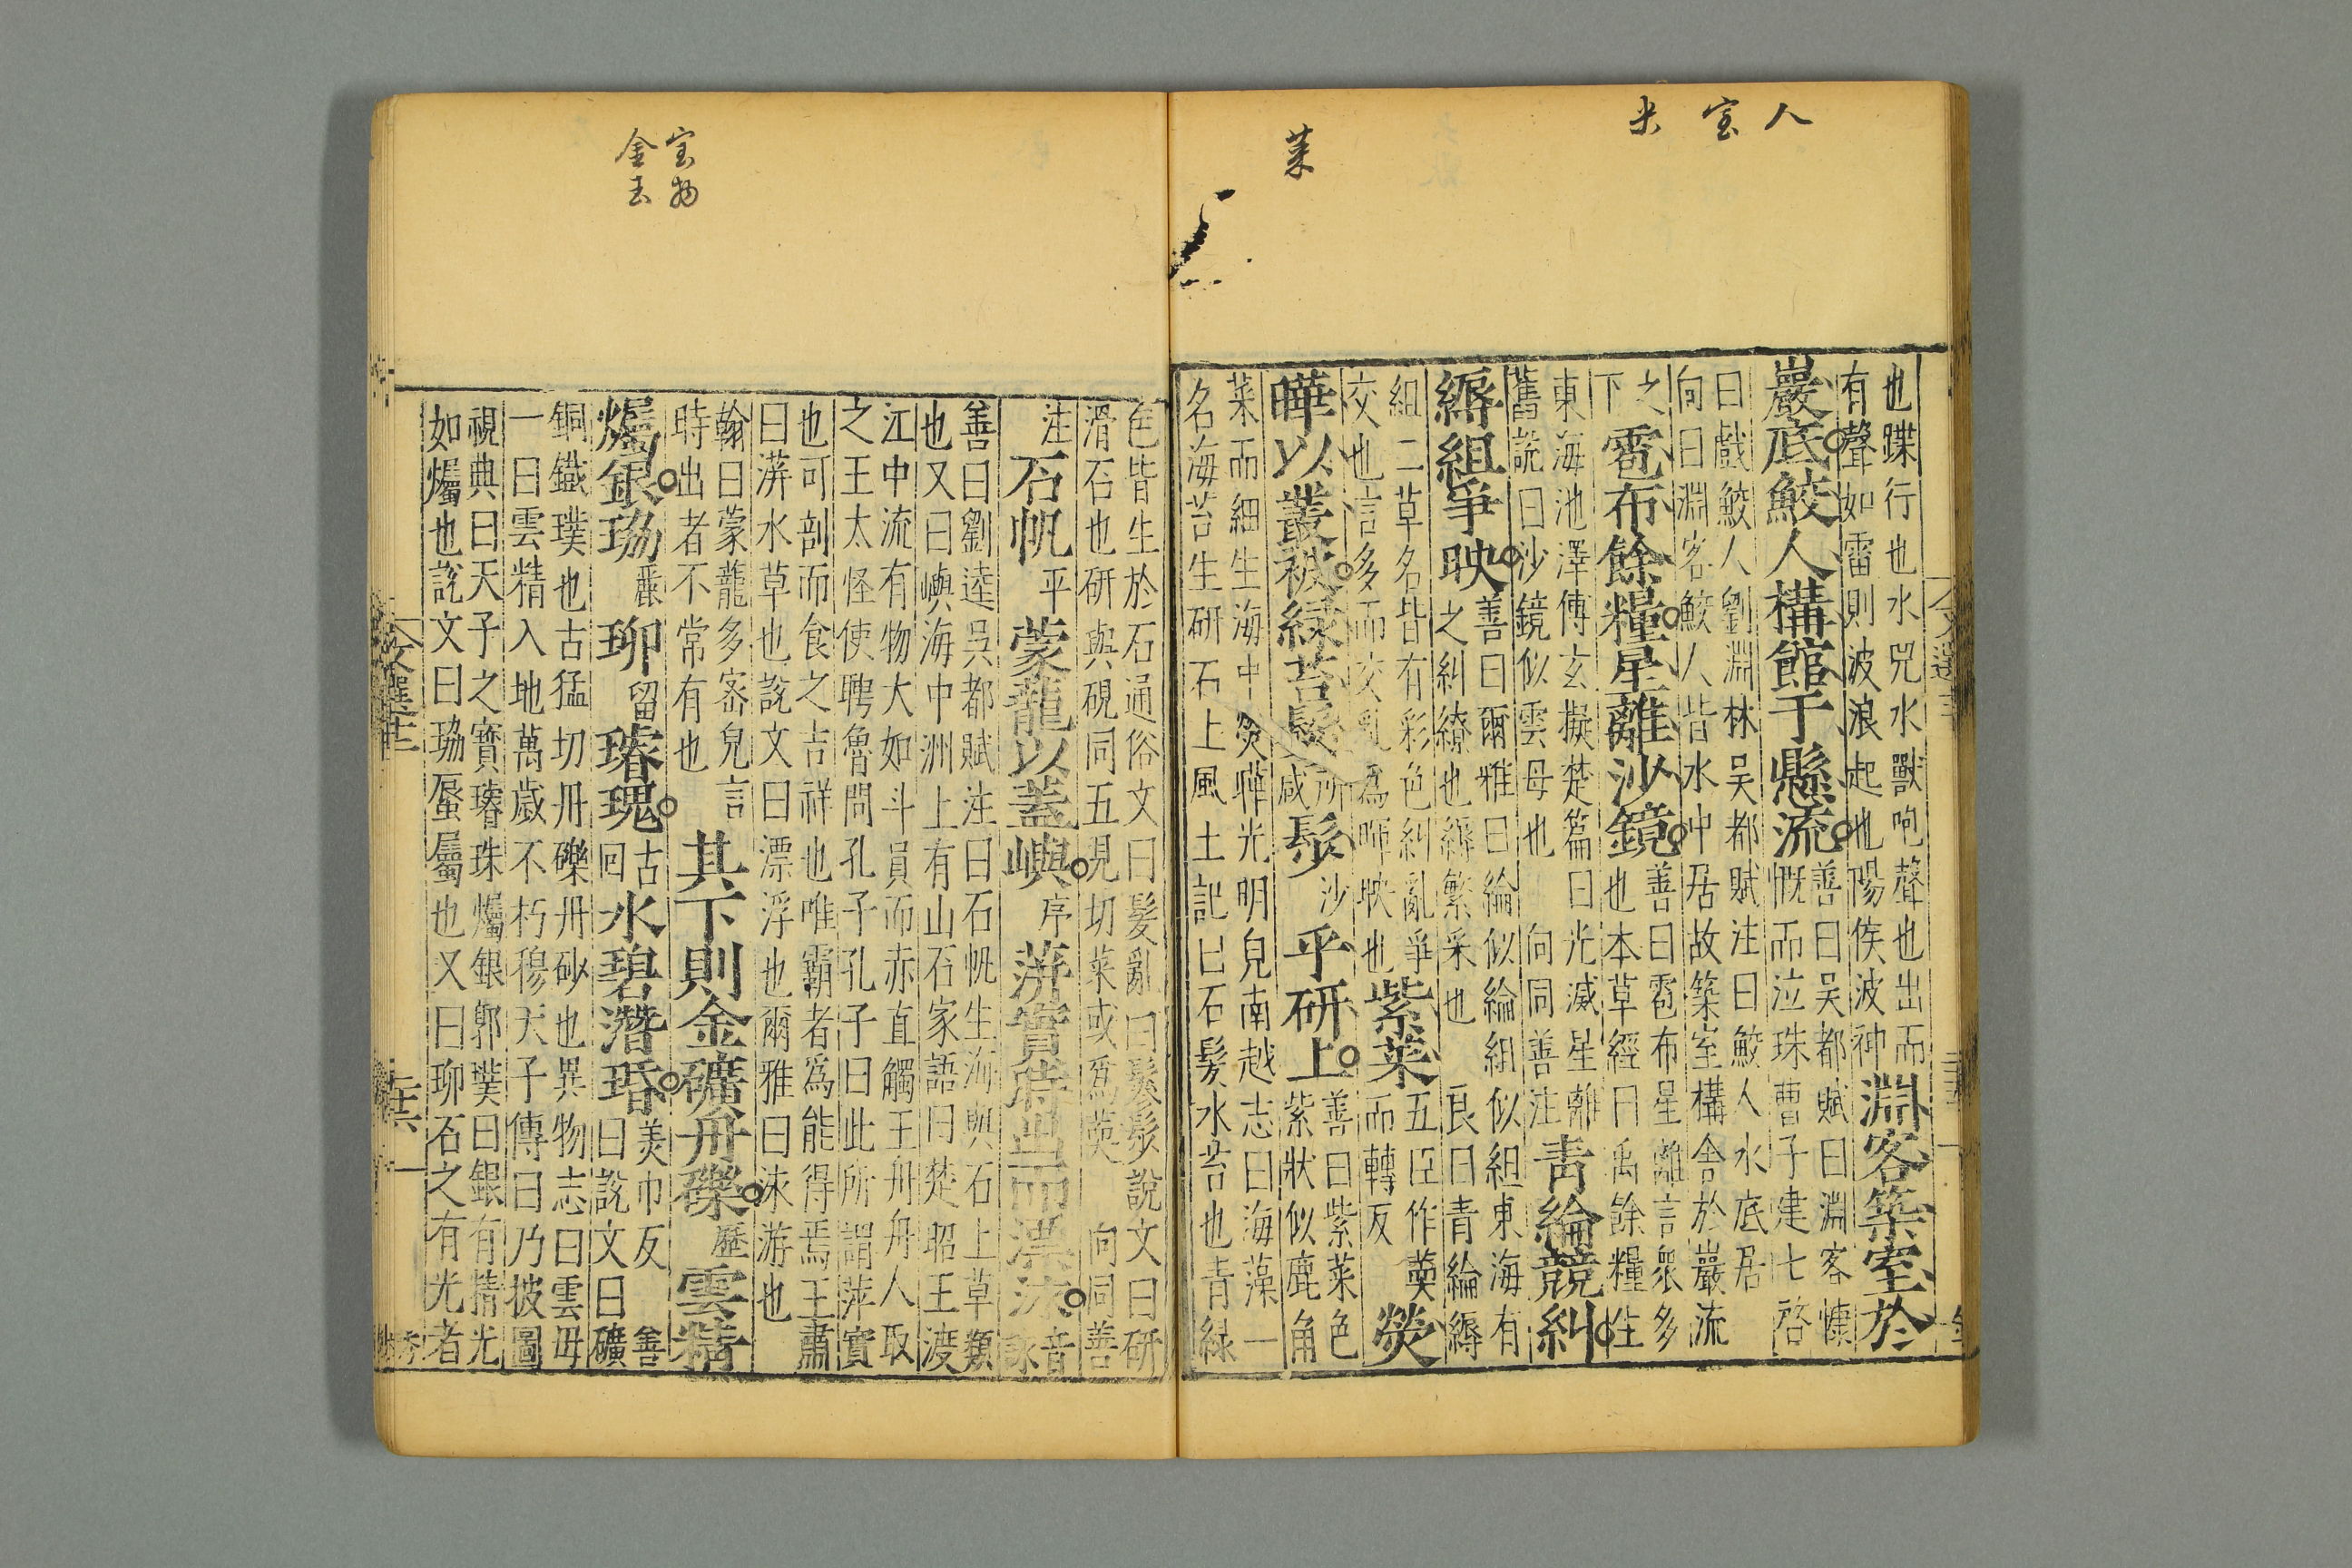 人
宝
米
菜
也蹀行也水兕水獸咆聲也出而
有聲如雷則波浪起也陽侯波神
淵客築室於
巖底鮫人構館于懸流
善曰吴都賦曰淵客慷
慨而泣珠曹子建七啓
曰戲鮫人劉淵林吴都賦注曰鮫人水底居
向曰淵客鮫人皆水中居故築室構舍於巖流
之
下
雹布餘糧星離沙鏡
善曰雹布星離言衆多
也本草經曰禹餘糧生
東海池澤傅玄擬楚篇曰光滅星離
舊說曰沙鏡似雲母也 向同善注
青綸競糾
縟組爭映
善曰爾雅曰綸似綸組似組東海有
之糾繚也縟繁采也 良曰青綸縟
組二草名皆有彩色糾亂爭
交也言多而交亂爲暉映也
紫菜
五臣作葖
而轉反
熒
曄以叢被緑苔鬖
所
咸
髿
沙
乎研上
善曰紫菜色
紫狀似鹿角
菜而細生海中熒曄光明皃南越志曰海藻一
名海苔生研石上風土記曰石髮水苔也青緑
宝物
金玉
色皆生於石通俗文曰髮亂曰鬖髿說文曰研
滑石也研與硯同五見切菜或爲葖 向同善
注
石帆
平
蒙蘢以蓋嶼
序
蓱實時出而漂泳
音
詠
善曰劉逵吳都賦注曰石帆生海嶼石上草類
也又曰嶼海中洲上有山石家語曰楚昭王渡
江中流有物大如斗員而赤直觸王舟舟人取
之王太怪使聘魯問孔子孔子曰此所謂萍實
也可剖而食之吉祥也唯霸者爲能得焉王肅
曰蓱水草也說文曰漂浮也爾雅曰泳游也
翰曰蒙蘢多密皃言
時出者不常有也
其下則金礦丹礫
歷
雲精
爥銀珕
麗
珋
留
璿瑰
古
回
水碧潛琘
美巾反 善
曰說文曰礦
銅鐵璞也古猛切丹礫丹砂也異物志曰雲母
一曰雲精入地萬歲不朽穆天子傳曰乃披圖
視典曰天子之寶璿珠爥銀郭璞曰銀有精光
如爥也說文曰珕蜃屬也又曰珋石之有光者